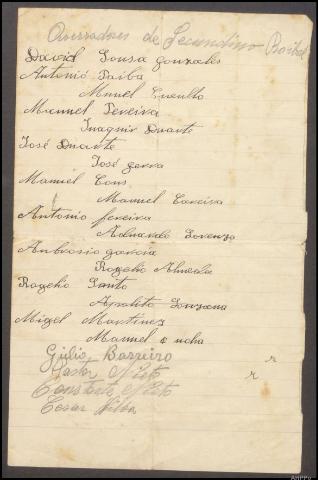 Querradores de Secundino Roibal
David Sousa gonzales
Antonio Paiba
Mnuel Cuculto
Manuel Pereira
Juaqnin Duarte
José Duarte
José gerra
Manuel Cons
Manuel Coreira
Antonio fereira
Aduardo Lorenzo
Ambrosio garcia
Rogelio Almeda
Rogelio Santo
Apolito Sonzana
Migel Martinez
Manuel
Gulio Barreiro r
Castor Nieto r
Constante Nieto
Cesar Silba